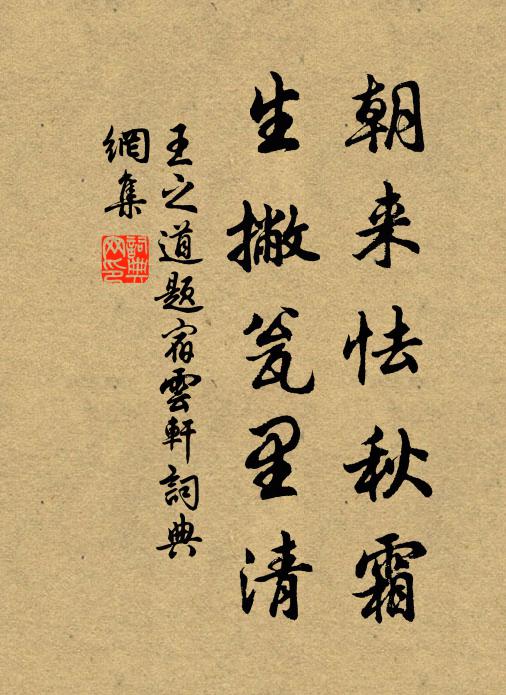 朝来怯秋霜
生撇瓮里清
王之道题宿雲軒詞典
網集
詞典網印